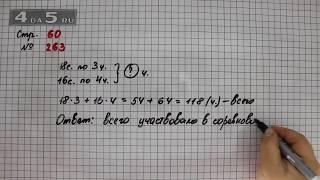 4DA5.RU
Стр. 60
№ 263
18с. по 3ч.
16с. по 4ч. } ? ч.
18·3+16·4=54+64=118(ч)-всего
Ответ: всего участвовало в соревнова